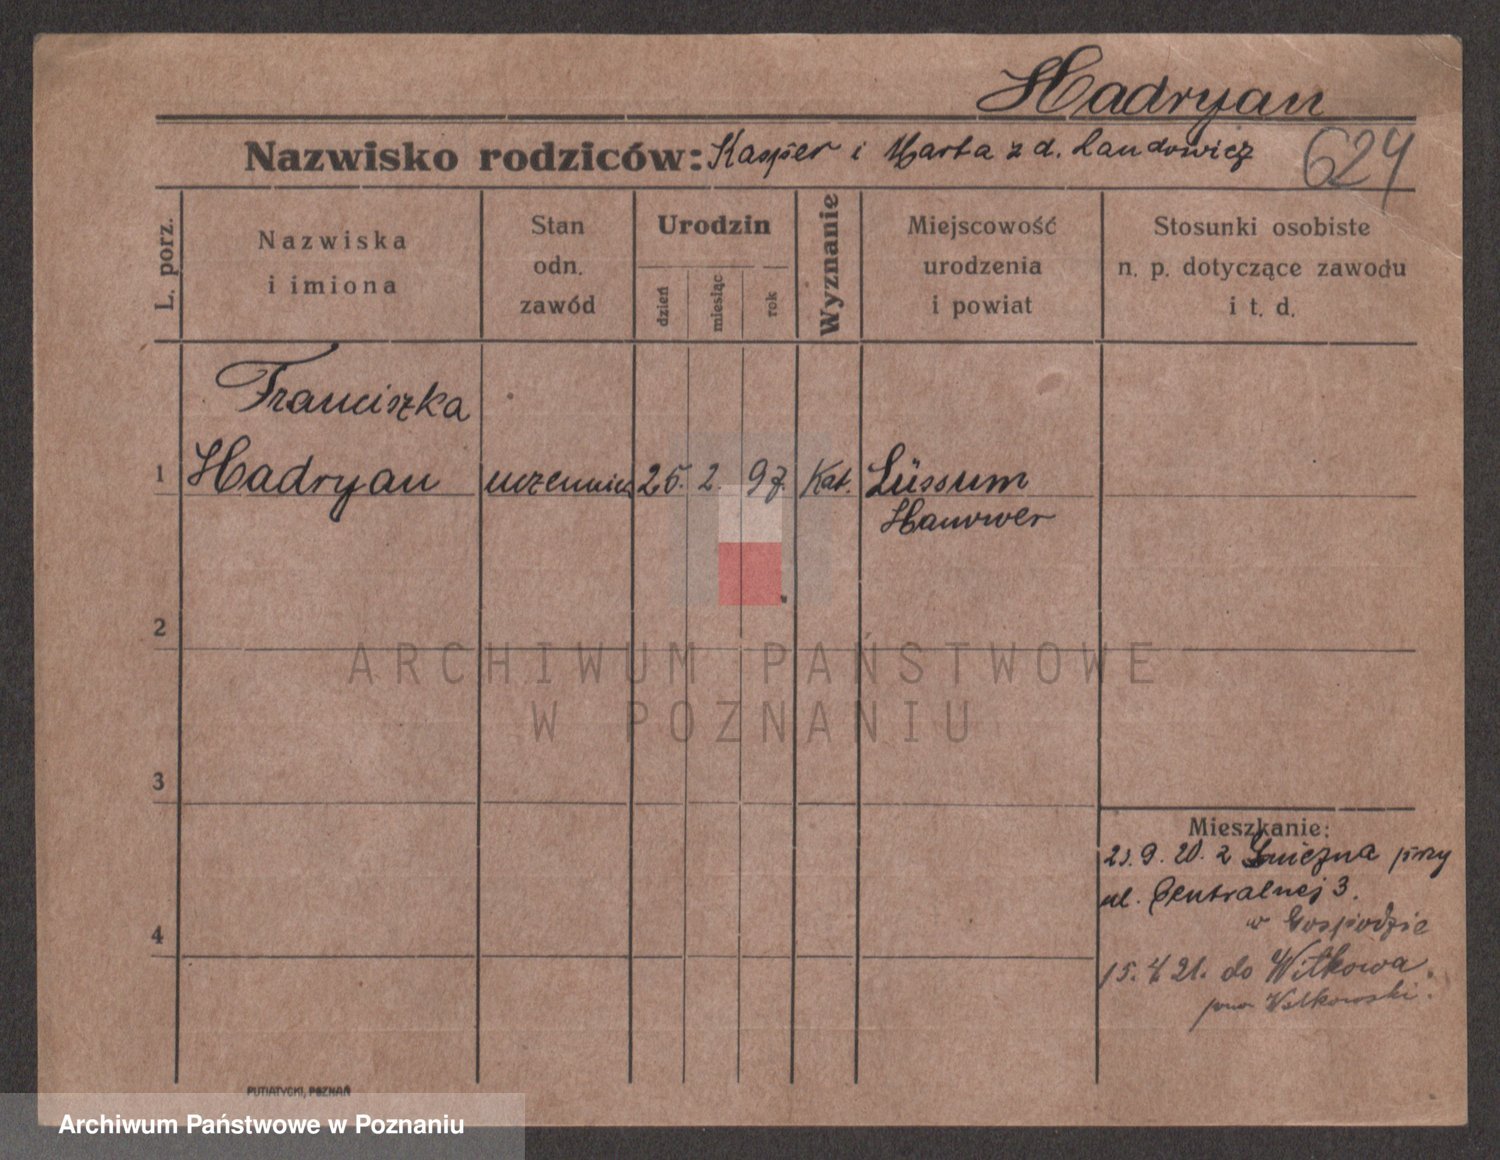 Hadryan
Nazwisko rodziców: Kasper i Marta z d. Landowicz 624
L. porz.
Nazwiska
i imiona
Stan
odn.
zawód
Urodzin
dzień
miesiąc
rok
Wyznanie
Miejscowość
urodzenia
i powiat
Stosunki osobiste
n. p. dotyczące zawodu
i t. d.
Franciszka
1 Hadryan uczennica 25. 2. 97. Kat. Lüssum
Hanower
2
3
4
ARCHIWUM PAŃSTWOWE
W POZNANIU
Mieszkanie:
9. 20. z Gniezna przy
ul. Centralnej 3.
w Gospodzie
15. 4 21. do Witkowa.
pow Witkowski.
PUTIATYCKI, POZNAŃ
Archiwum Państwowe w Poznaniu